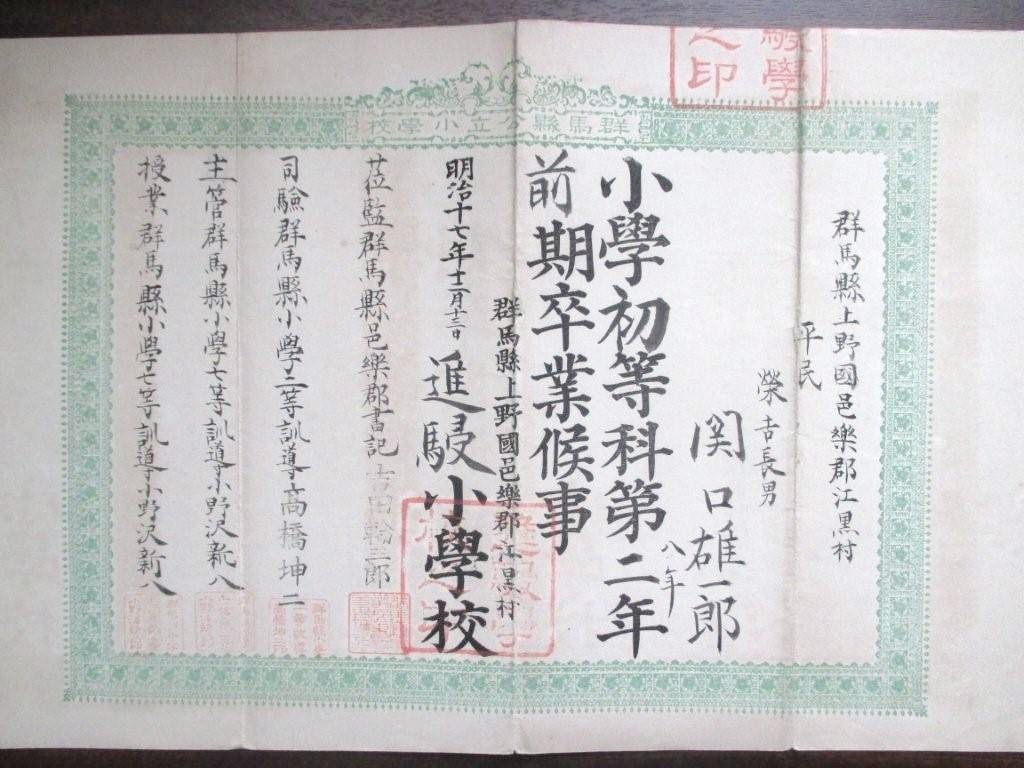 群馬縣公立小學校
群馬縣上野國邑樂郡江黒村
平民
榮吉長男
関口雄一郎
八年
小學初等科第二年
前期卒業候事
群馬縣上野國邑樂郡江黒村
明治十七年十二月十三日
進駸小學校
莅監群馬縣邑樂郡書記吉田輪三郎
司驗群馬縣小學二等訓導高橋坤二
主管群馬縣小學七等訓導小野沢新八
授業群馬縣小學七等訓導小野沢新八
學
之印